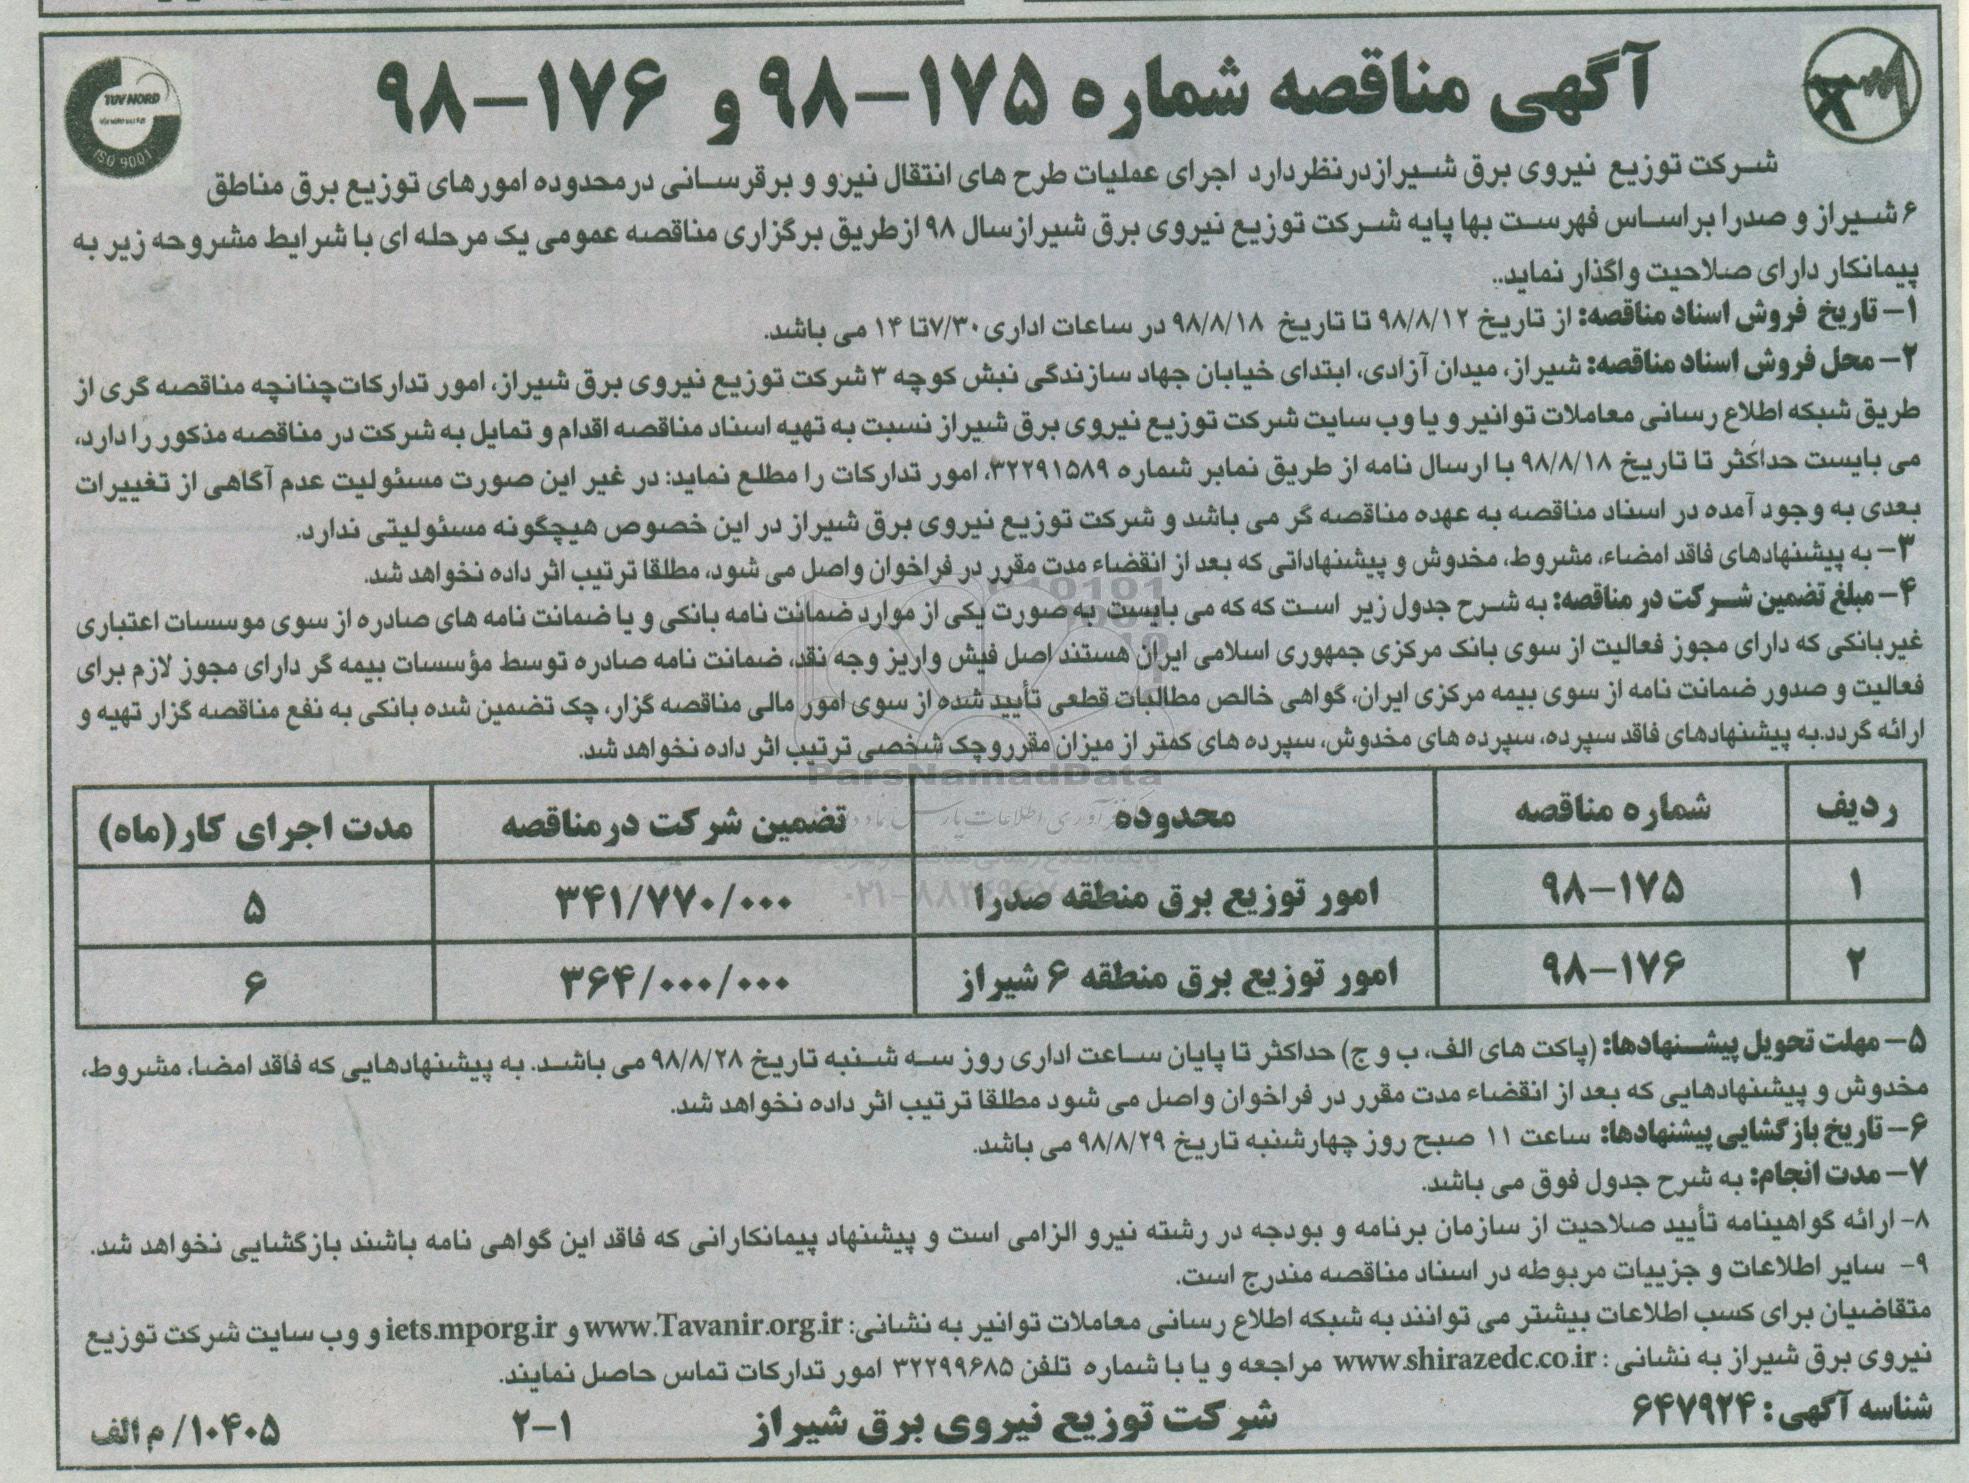 آگهی مناقصه شماره ۱۷۵-۹۸ و ۱۷۶-۹۸
TUV NORD
ISO 9001
شرکت توزیع نیروی برق شیراز در نظر دارد اجرای عملیات طرح های انتقال نیرو و برقرسانی در محدوده امورهای توزیع برق مناطق
۶ شیراز و صدرا بر اساس فهرست بها پایه شرکت توزیع نیروی برق شیراز سال ۹۸ از طریق برگزاری مناقصه عمومی یک مرحله ای با شرایط مشروحه زیر به
پیمانکار دارای صلاحیت واگذار نماید..
۱- تاریخ فروش اسناد مناقصه: از تاریخ ۹۸/۸/۱۲ تا تاریخ ۹۸/۸/۱۸ در ساعات اداری ۷/۳۰ تا ۱۴ می باشد.
۲- محل فروش اسناد مناقصه: شیراز، میدان آزادی، ابتدای خیابان جهاد سازندگی نبش کوچه ۳ شرکت توزیع نیروی برق شیراز، امور تدارکات چنانچه مناقصه گری از
طریق شبکه اطلاع رسانی معاملات توانیر و یا وب سایت شرکت توزیع نیروی برق شیراز نسبت به تهیه اسناد مناقصه اقدام و تمایل به شرکت در مناقصه مذکور را دارد،
می بایست حداکثر تا تاریخ ۹۸/۸/۱۸ با ارسال نامه از طریق نمابر شماره ۳۲۲۹۱۵۸۹، امور تدارکات را مطلع نماید: در غیر این صورت مسئولیت عدم آگاهی از تغییرات
بعدی به وجود آمده در اسناد مناقصه به عهده مناقصه گر می باشد و شرکت توزیع نیروی برق شیراز در این خصوص هیچگونه مسئولیتی ندارد.
۳- به پیشنهادهای فاقد امضاء، مشروط، مخدوش و پیشنهاداتی که بعد از انقضاء مدت مقرر در فراخوان واصل می شود، مطلقا ترتیب اثر داده نخواهد شد.
۴- مبلغ تضمین شرکت در مناقصه: به شرح جدول زیر است که که می بایست به صورت یکی از موارد ضمانت نامه بانکی و یا ضمانت نامه های صادره از سوی موسسات اعتباری
غیربانکی که دارای مجوز فعالیت از سوی بانک مرکزی جمهوری اسلامی ایران هستند اصل فیش واریز وجه نقد، ضمانت نامه صادره توسط مؤسسات بیمه گر دارای مجوز لازم برای
فعالیت و صدور ضمانت نامه از سوی بیمه مرکزی ایران، گواهی خالص مطالبات قطعی تأیید شده از سوی امور مالی مناقصه گزار، چک تضمین شده بانکی به نفع مناقصه گزار تهیه و
ارائه گردد.به پیشنهادهای فاقد سپرده، سپرده های مخدوش، سپرده های کمتر از میزان مقرر و چک شخصی ترتیب اثر داده نخواهد شد.
ParsNamadData
ردیف شماره مناقصه محدوده تضمین شرکت در مناقصه مدت اجرای کار(ماه)
۱ ۹۸-۱۷۵ امور توزیع برق منطقه صدرا ۳۴۱/۷۷۰/۰۰۰ ۵
۲ ۹۸-۱۷۶ امور توزیع برق منطقه ۶ شیراز ۳۶۴/۰۰۰/۰۰۰ ۶
۵- مهلت تحویل پیشنهادها: (پاکت های الف، ب و ج) حداکثر تا پایان ساعت اداری روز سه شنبه تاریخ ۹۸/۸/۲۸ می باشد. به پیشنهادهایی که فاقد امضا، مشروط،
مخدوش و پیشنهادهایی که بعد از انقضاء مدت مقرر در فراخوان واصل می شود مطلقا ترتیب اثر داده نخواهد شد.
۶- تاریخ بازگشایی پیشنهادها: ساعت ۱۱ صبح روز چهارشنبه تاریخ ۹۸/۸/۲۹ می باشد.
۷- مدت انجام: به شرح جدول فوق می باشد.
۸- ارائه گواهینامه تأیید صلاحیت از سازمان برنامه و بودجه در رشته نیرو الزامی است و پیشنهاد پیمانکارانی که فاقد این گواهی نامه باشند بازگشایی نخواهد شد.
۹- سایر اطلاعات و جزییات مربوطه در اسناد مناقصه مندرج است.
متقاضیان برای کسب اطلاعات بیشتر می توانند به شبکه اطلاع رسانی معاملات توانیر به نشانی: www.Tavanir.org.ir و iets.mporg.ir و وب سایت شرکت توزیع
نیروی برق شیراز به نشانی : www.shirazedc.co.ir مراجعه و یا با شماره تلفن ۳۲۲۹۹۶۸۵ امور تدارکات تماس حاصل نمایند.
شناسه آگهی: ۶۴۷۹۲۴
شرکت توزیع نیروی برق شیراز ۲-۱ ۱۰۴۰۵/ م الف